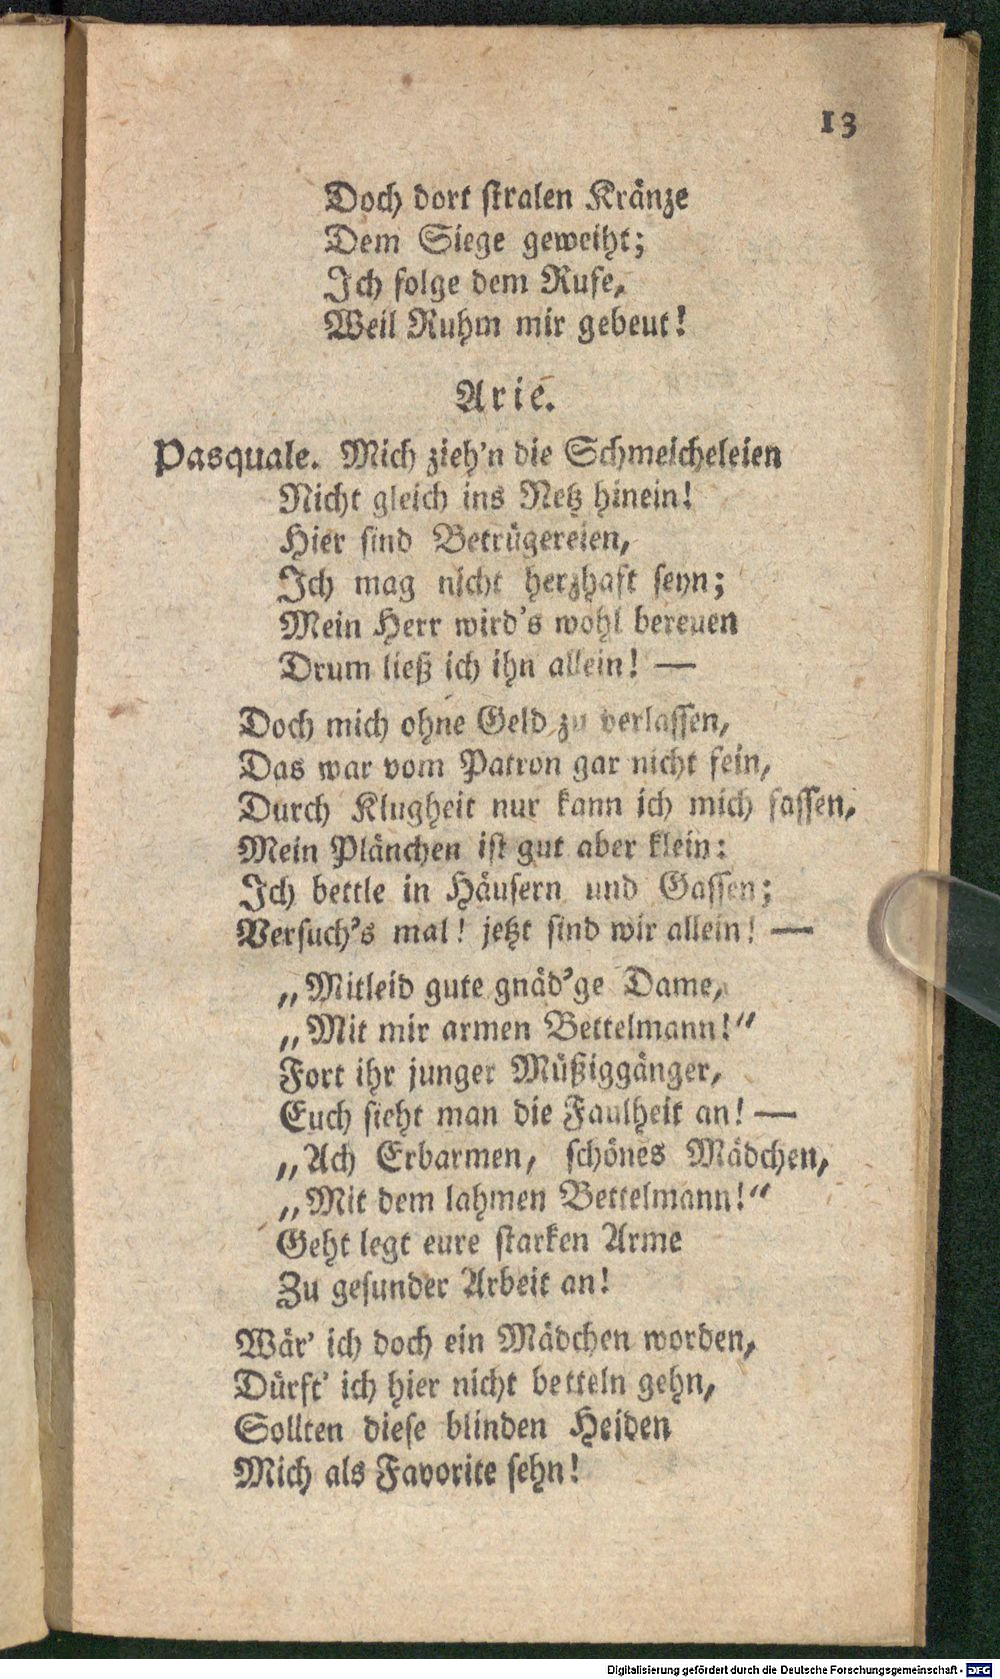 13
Doch dort ſtralen Kränze
Dem Siege geweiht;
Ich folge dem Rufe,
Weil Ruhm mir gebeut!
Arie.
Pasquale. Mich zieh'n die Schmeicheleien
Nicht gleich ins Netz hinein!
Hier ſind Betrügereien,
Ich mag nicht herzhaft ſeyn;
Mein Herr wird's wohl bereuen
Drum ließ ich ihn allein! —
Doch mich ohne Geld zu verlaſſen,
Das war vom Patron gar nicht fein,
Durch Klugheit nur kann ich mich faſſen,
Mein Plänchen iſt gut aber klein:
Ich bettle in Häuſern und Gaſſen;
Verſuch's mal! jetzt ſind wir allein! —
„Mitleid gute gnäd'ge Dame,
„Mit mir armen Bettelmann!“
Fort ihr junger Müßiggänger,
Euch ſieht man die Faulheit an! —
„Ach Erbarmen, ſchönes Mädchen,
„Mit dem lahmen Bettelmann!“
Geht legt eure ſtarken Arme
Zu geſunder Arbeit an!
Wär' ich doch ein Mädchen worden,
Dürft' ich hier nicht betteln gehn,
Sollten dieſe blinden Heiden
Mich als Favorite ſehn!
Digitalisierung gefördert durch die Deutsche Forschungsgemeinschaft - DFG